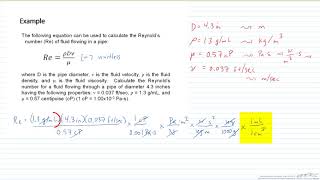 Example
The following equation can be used to calculate the Reynold's
number (Re) of fluid flowing in a pipe:
Re = ρDv / μ [=] unitless
where D is the pipe diameter, v is the fluid velocity, ρ is the fluid
density, and μ is the fluid viscosity. Calculate the Reynold's
number for a fluid flowing through a pipe of diameter 4.3 inches
having the following properties: v = 0.037 ft/sec, ρ = 1.3 g/mL, and
μ = 0.57 centipoise (cP) (1 cP = 1.00×10⁻³ Pa·s)
D = 4.3 in → m
ρ = 1.3 g/mL → kg/m³
μ = 0.57 cP → Pa·s
v = 0.037 ft/sec
→ m/sec
Re = (1.3 g/mL)(4.3 in)(0.037 ft/sec) / 0.57 cP